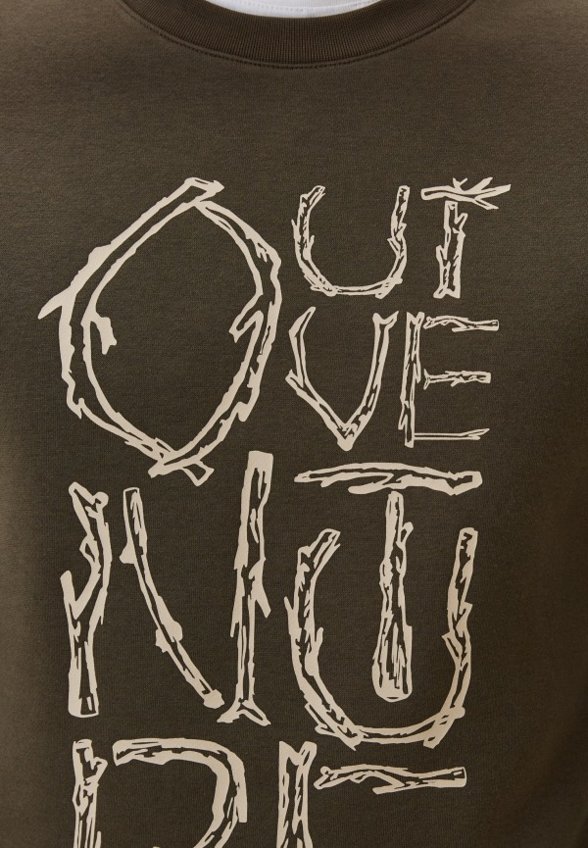 OUT
VE
NTU
RE